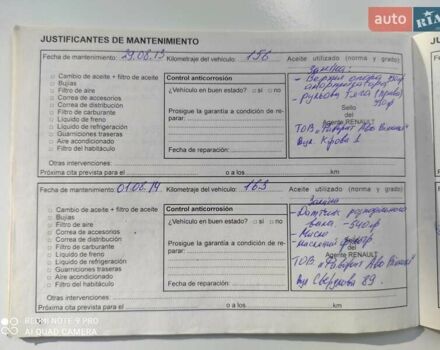 auto RIA
JUSTIFICANTES DE MANTENIMIENTO
Fecha de mantenimiento: 29.08.13 Kilometraje del vehículo: 156 Aceite utilizado (norma y grado)
Заміна:
□ Cambio de aceite + filtro de aceite
□ Bujías
□ Filtro de aire
□ Correa de accesorios
□ Correa de distribución
□ Filtro de carburante
□ Líquido de freno
□ Líquido de refrigeración
□ Guarniciones traseras
□ Aire acondicionado
□ Filtro del habitáculo
Control anticorrosión
¿Vehículo en buen estado? □ si □ no
Prosigue la garantía a condición de reparar:
Fecha de reparación:
- Верхня опора
амортизатора
Sello
del
Agente RENAULT
ТОВ „Фаворит Авто Вінниця"
Вул. Кірова 1
Otras intervenciones:
Próxima cita prevista para el o a los km
Fecha de mantenimiento: 01.08.14 Kilometraje del vehículo: 163 Aceite utilizado (norma y grado)
Заміна
□ Cambio de aceite + filtro de aceite
□ Bujías
□ Filtro de aire
□ Correa de accesorios
□ Correa de distribución
□ Filtro de carburante
□ Líquido de freno
□ Líquido de refrigeración
□ Guarniciones traseras
□ Aire acondicionado
□ Filtro del habitáculo
Control anticorrosión
¿Vehículo en buen estado? □ si □ no
Prosigue la garantía a condición de reparar:
Fecha de reparación:
- Масло
del
Agente RENAULT
ТОВ „Фаворит Авто Вінниця"
вул Свердлова 89.
Otras intervenciones:
Próxima cita prevista para el o a los km
REDMI NOTE 9 PRO
AI QUAD CAMERA